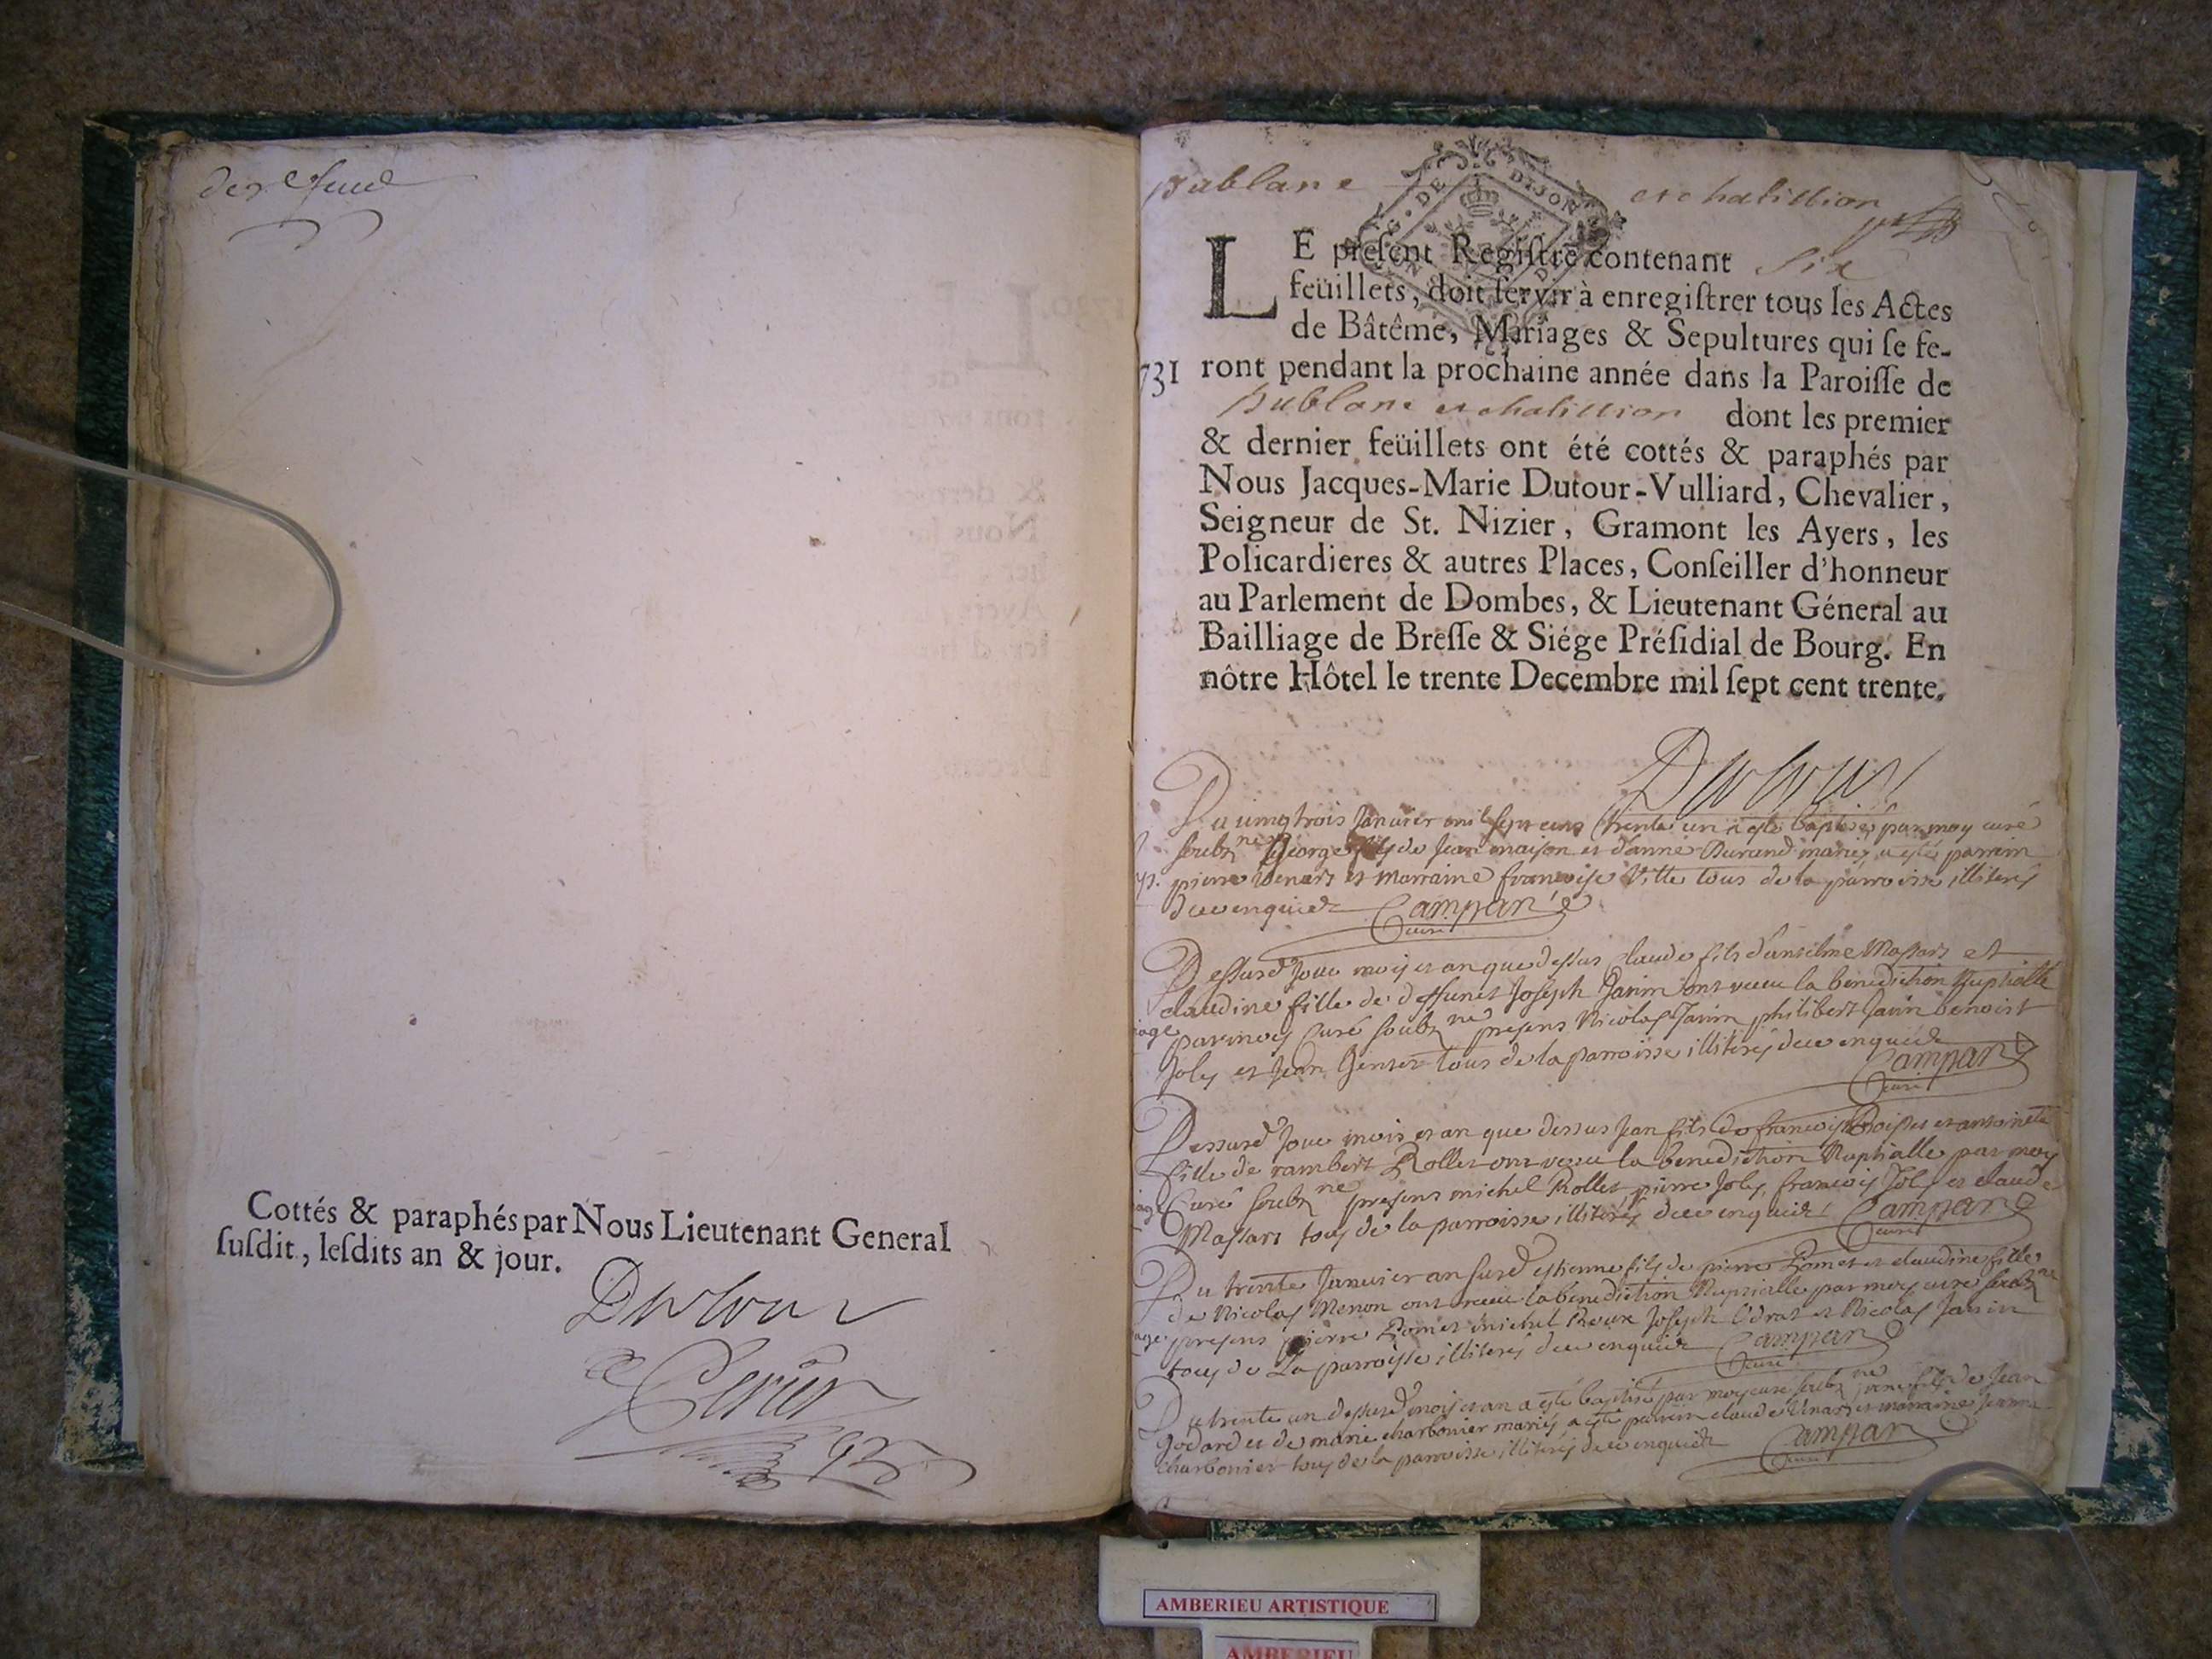 Cottés & paraphés par Nous Lieutenant General
ſuſdit, leſdits an & jour.
Dutour
et chatillion
DE DIJON
LE preſent Regiſtre contenant Six
feüillets, doit ſervir à enregiſtrer tous les Actes
de Bâtême, Mariages & Sepultures qui ſe fe-
731 ront pendant la prochaine année dans la Paroiſſe de
Bublane et chatillion dont les premier
& dernier feüillets ont été cottés & paraphés par
Nous Jacques-Marie Dutour-Vulliard, Chevalier,
Seigneur de St. Nizier, Gramont les Ayers, les
Policardieres & autres Places, Conſeiller d'honneur
au Parlement de Dombes, & Lieutenant Géneral au
Bailliage de Breſſe & Siége Préſidial de Bourg. En
nôtre Hôtel le trente Decembre mil ſept cent trente.
Dutour
Du vingt trois Janvier mil sept cens trente un a esté baptisé par moy curé
soubz ne George fils de Jean maison et d'anne Durand mariés a esté parrein
pierre Venars et Marraine francoise Vitte tous de la parroisse illiterés
de ce enquis Campan
curé
Dessusd jour mois et an que dessus Claude fils d'anselme Massars et
claudine fille de deffunct Joseph Janin ont receu la benediction Nuptialle
par moy Curé soubz ne presens Nicolas Janin philibert Janin benoist
Joly et Jean tous de la parroisse illiterés de ce enquis
Campan
curé
Dessusd Jour mois et an que dessus Jean fils de francois et antoinette
fille de rambert Rollet ont receu la benediction Nuptialle par moy
Curé soubz ne presens michel Rollet pierre Joly francois Joly et claude
Massars tous de la parroisse illiterés de ce enquis Campan
curé
Du trente Janvier an susd estienne fils de pierre et claudine fille
de Nicolas Menon ont receu la benediction Nuptialle par moy curé soubz ne
presens pierre michel Roux Joseph et Nicolas Janin
tous de La parroisse illiterés de ce enquis Campan
curé
Du trente un dessusd mois et an a esté baptisé par moy curé soubz ne fils de Jean
Godard et de marie charbonier mariés a esté parrein claude Venars et marraine Jeanne
charbonier tous de la parroisse illiterés de ce enquis Campan
curé
AMBERIEU ARTISTIQUE
AMBERIEU